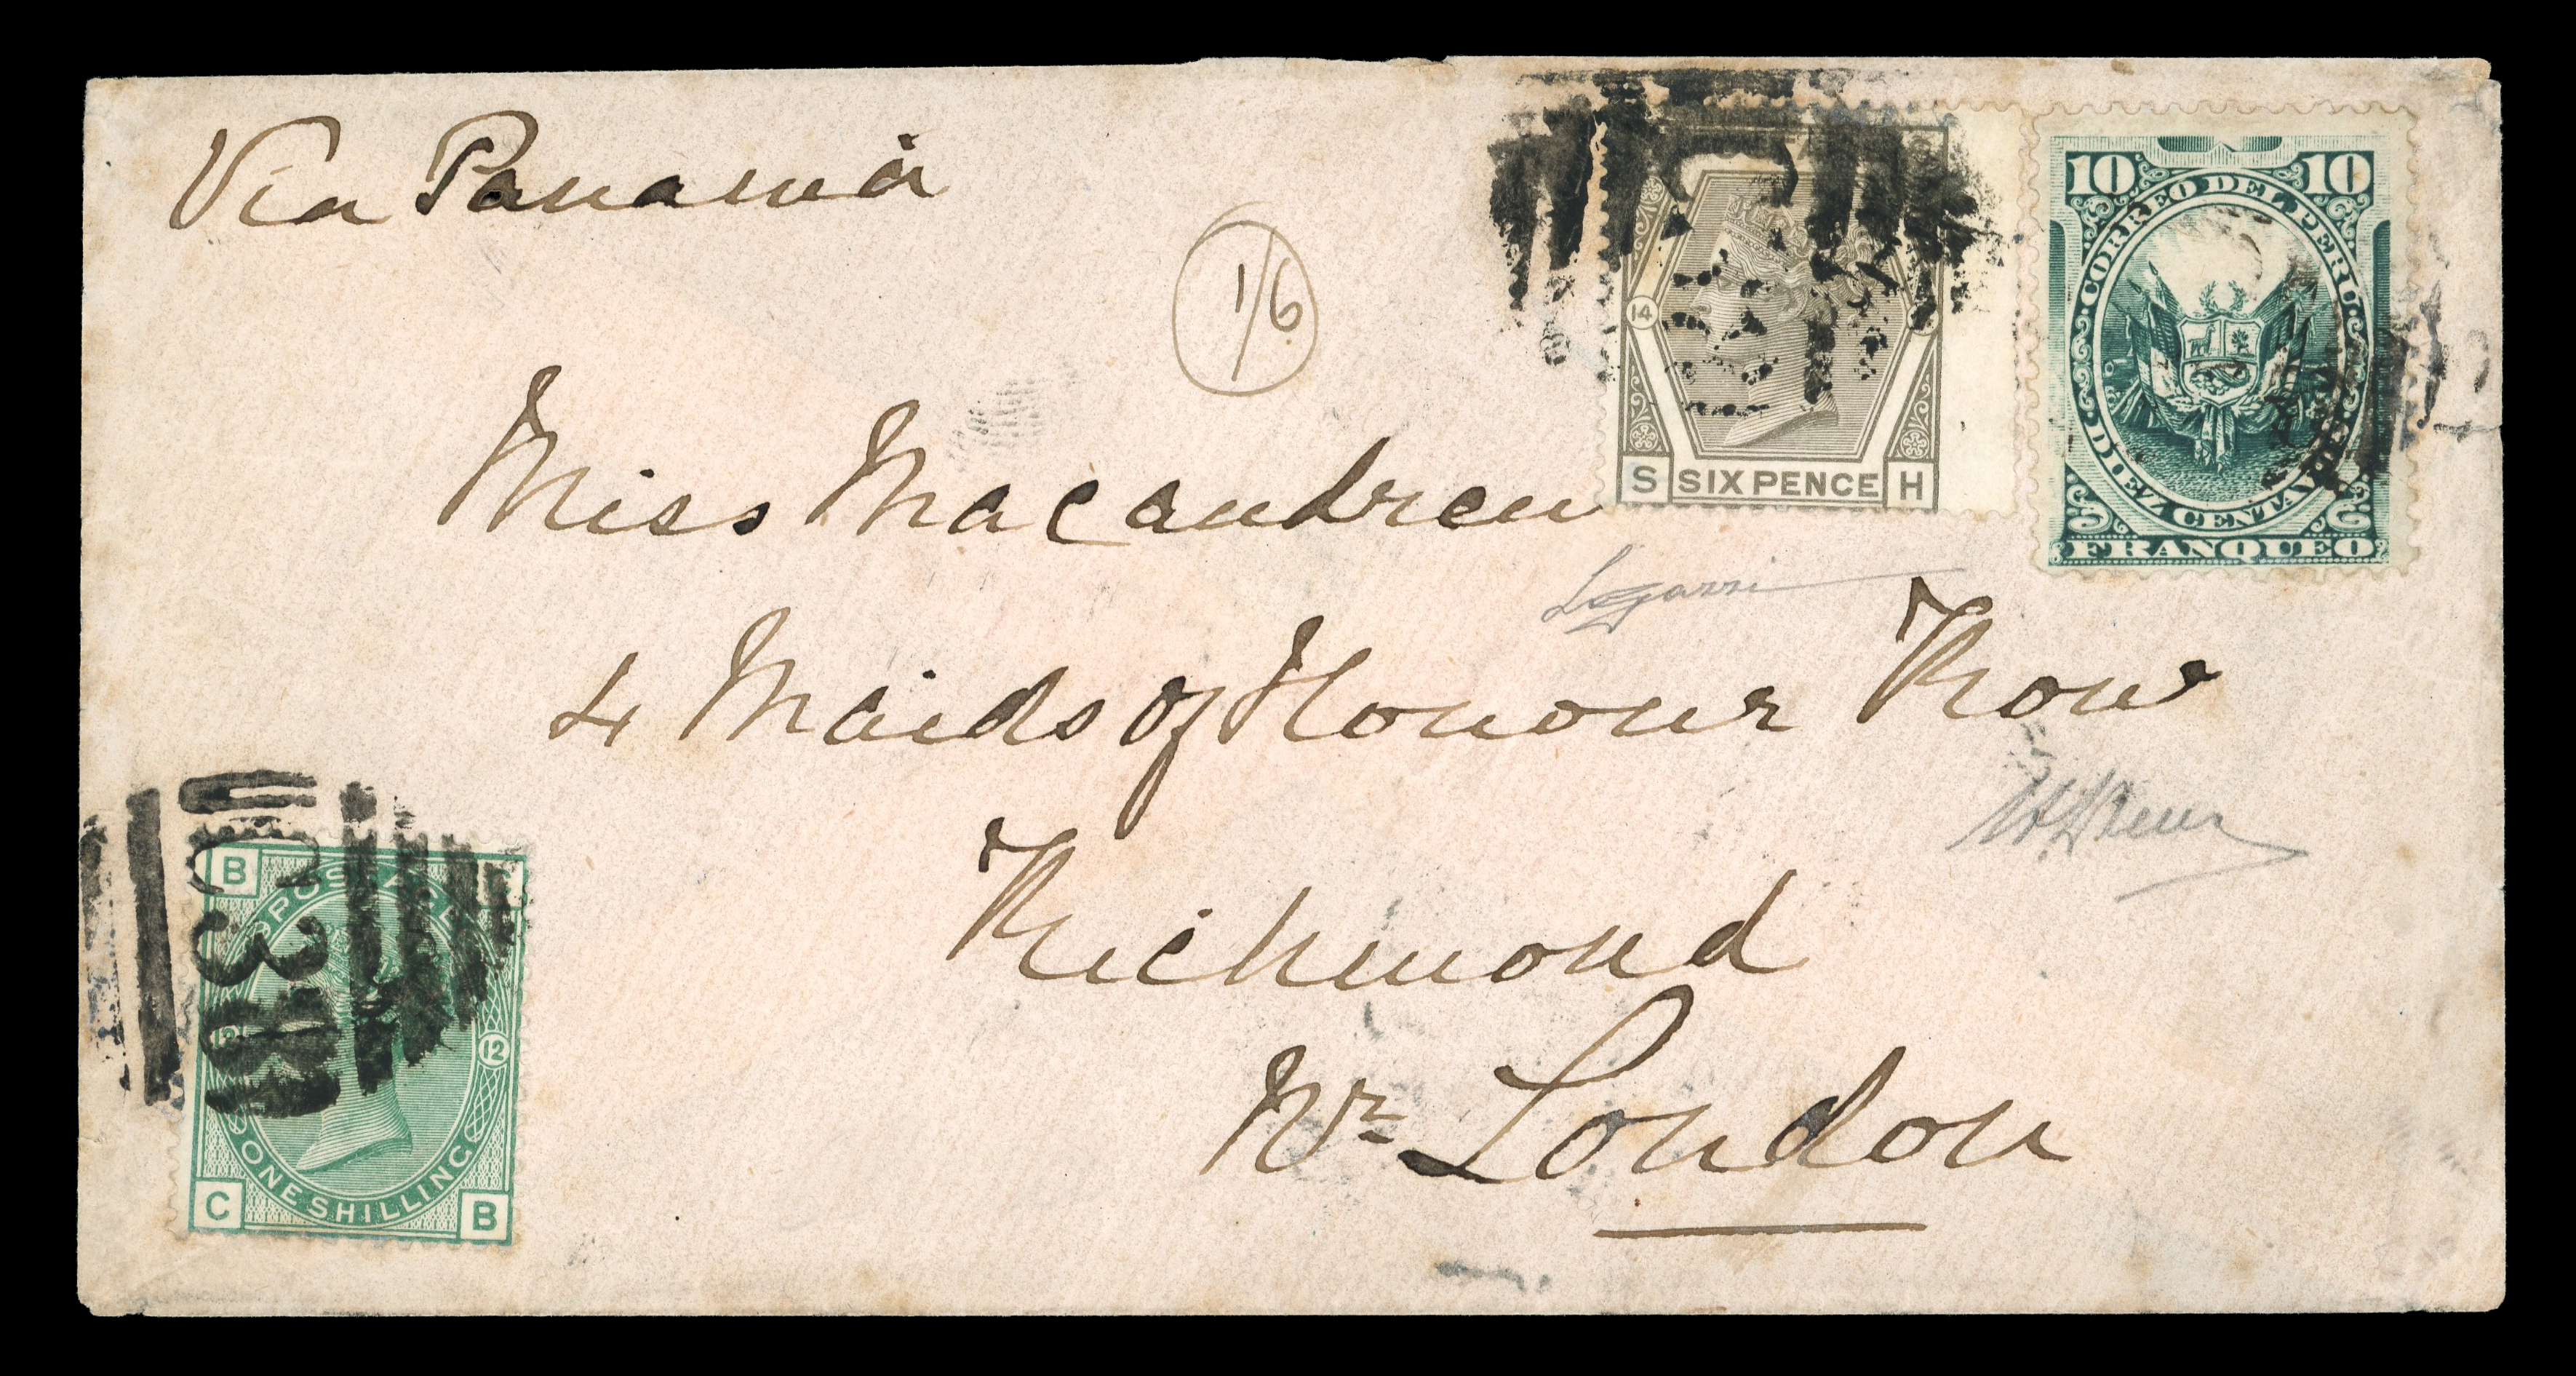 Via Panamá
1/6
14
S SIX PENCE H
10 10
CORREO DEL PERU
DIEZ CENTAVOS
FRANQUEO
Miss Macandrew
4 Maids of Honour Row
Richmond
Nr London
B
POSTAGE
C38
12 12
ONE SHILLING
C B